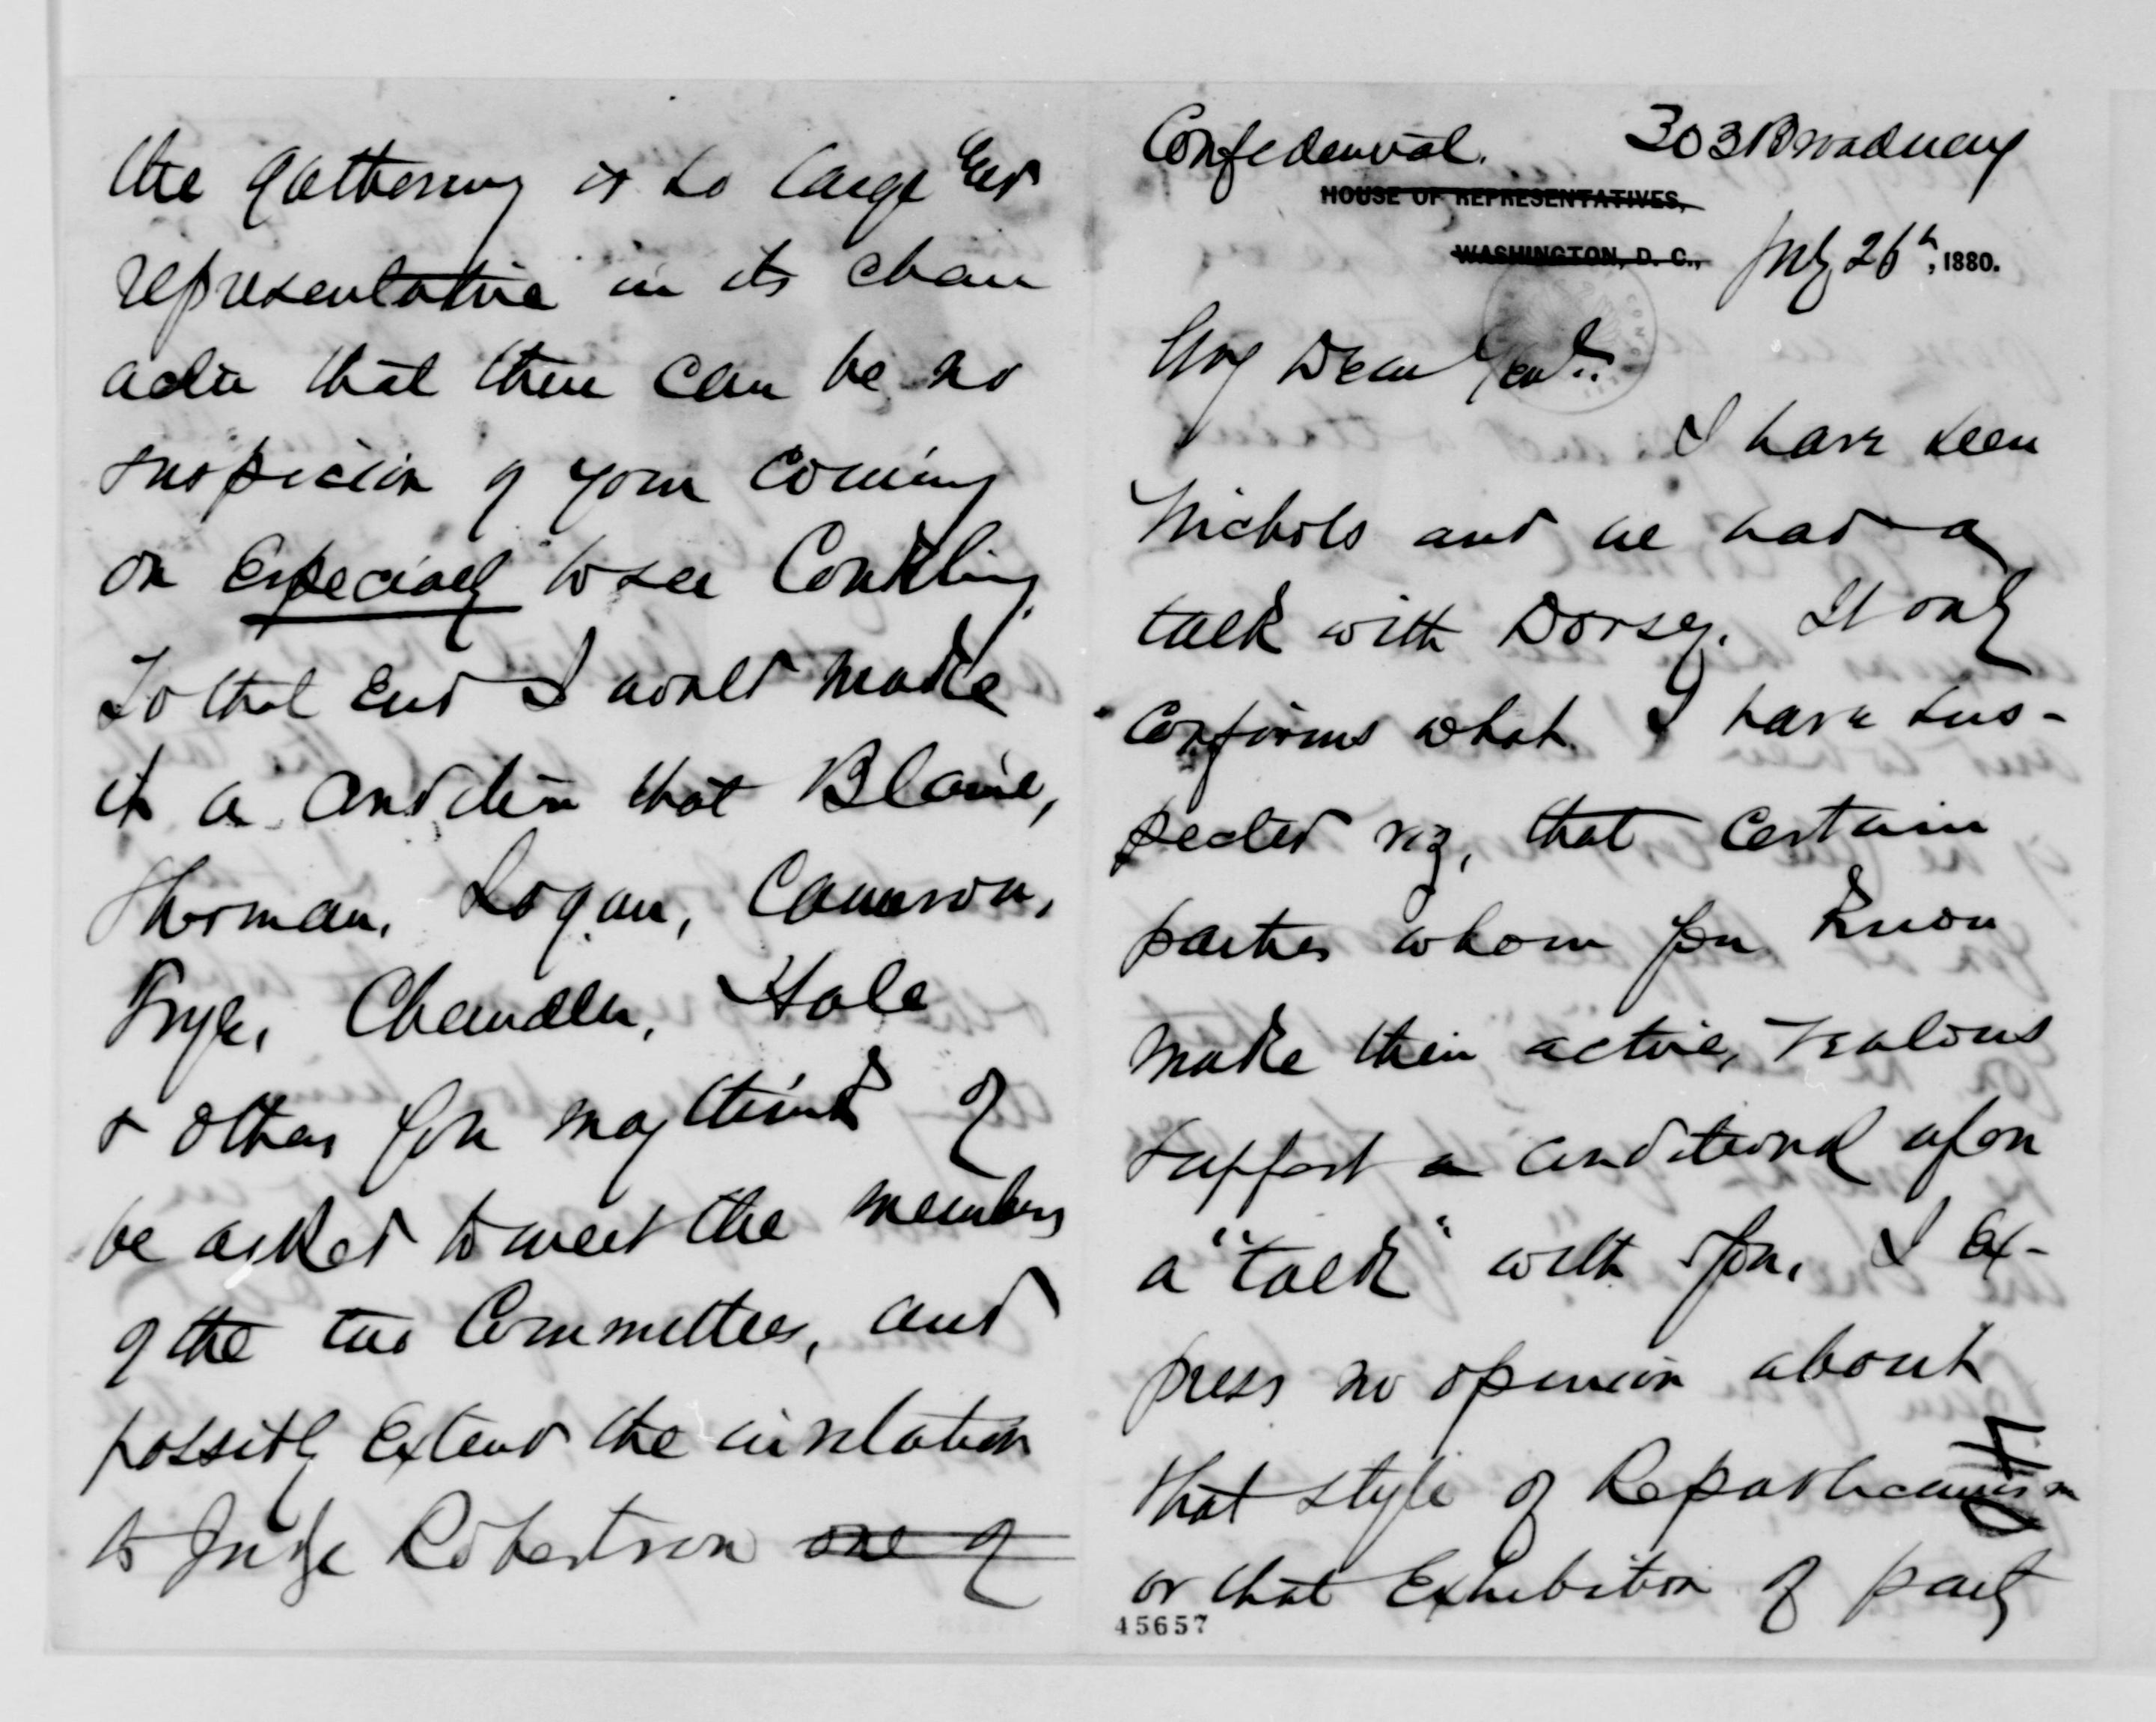 Confidential. 303 Broadway
HOUSE OF REPRESENTATIVES,
WASHINGTON, D. C., July 26th, 1880.
My Dear Genl:
I have seen
Nichols and we had a
talk with Dorsey. It only
confirms what I have sus-
pected viz, that certain
parties whom you know
make their active, zealous
support a conditional upon
a "talk" with you. I ex-
press no opinion about
that style of Republicanism
or that Exhibition of party
45657
the gathering is so large and
representative in its char
acter that there can be no
suspicion of your coming
on Especially to see Conkling.
To that End I would make
it a condition that Blaine,
Sherman, Logan, Cameron,
Frye, Chandler, Hale
& others you may think of
be asked to meet the members
of the two Committees, and
possibly Extend the invitation
to Judge Robertson one of